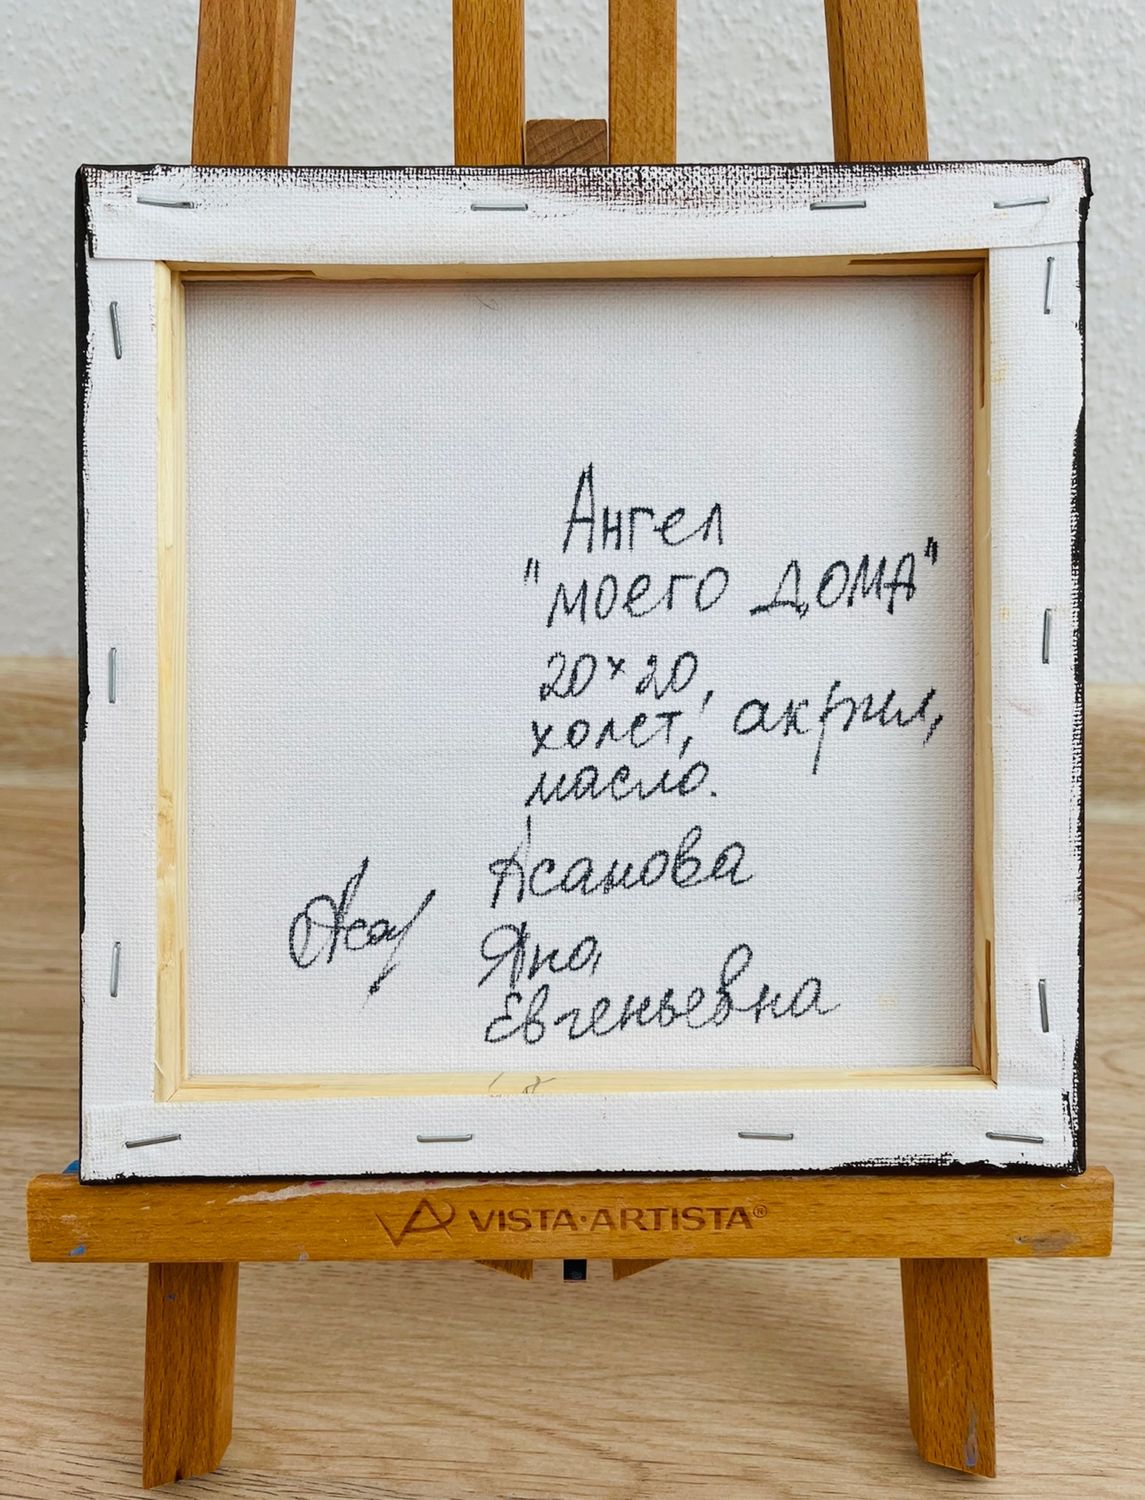 Ангел
"моего дома"
20×20,
холст, акрил,
масло.
Асанова
Яна
Евгеньевна
VISTA·ARTISTA®